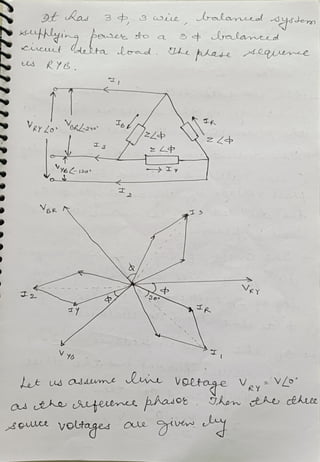 It has 3 Φ, 3 wire, balanced system
supplying power to a 3 Φ balanced
circuit delta load. The phase sequence
is RYB.
I₁
V_RY∠0°
V_BR∠-240°
I_B
Z∠Φ
I_R
Z∠Φ
I₃
Z∠Φ
V_YB∠-120°
I_Y
I₂
V_BR
I₃
Φ
V_RY
I₂
I_Y
Φ
30°
Φ
I_R
V_YB
I₁
Let us assume line voltage V_RY = V∠0°
as the reference phasor. Then the three
source voltages are given by